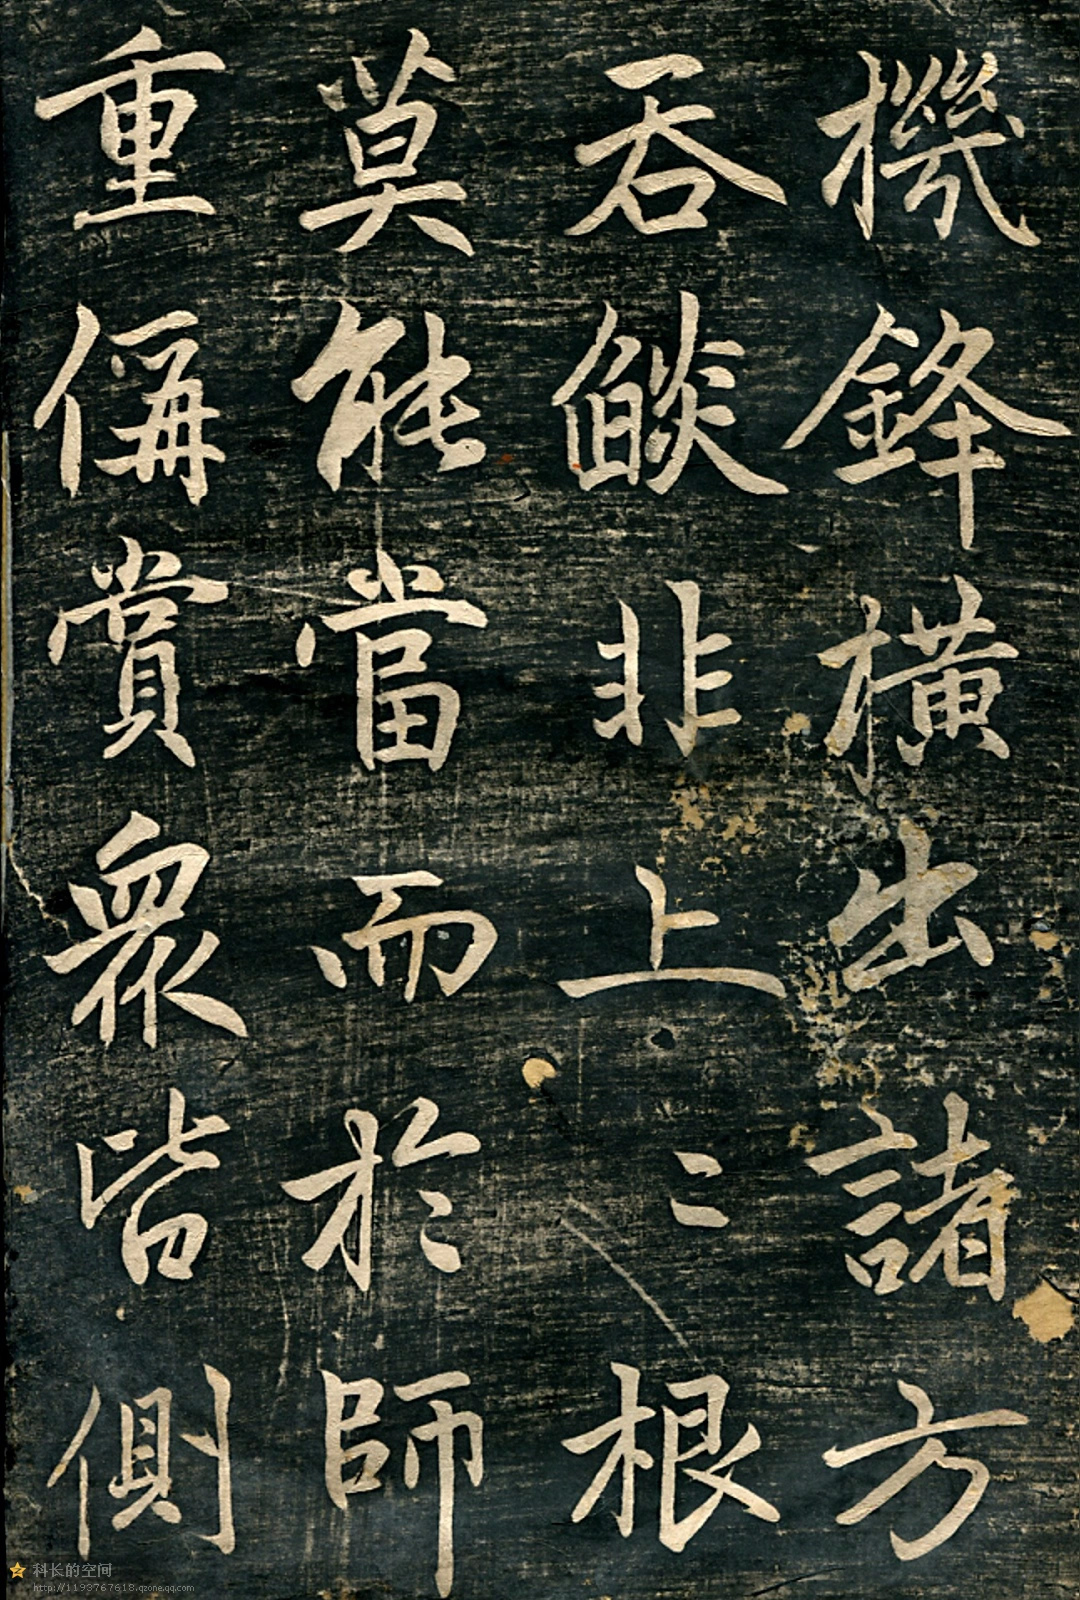 機鋒橫出諸方
吞餤非上〻根
莫能當而於師
重偁賞衆皆側
科长的空间
http://1193767618.qzone.qq.com